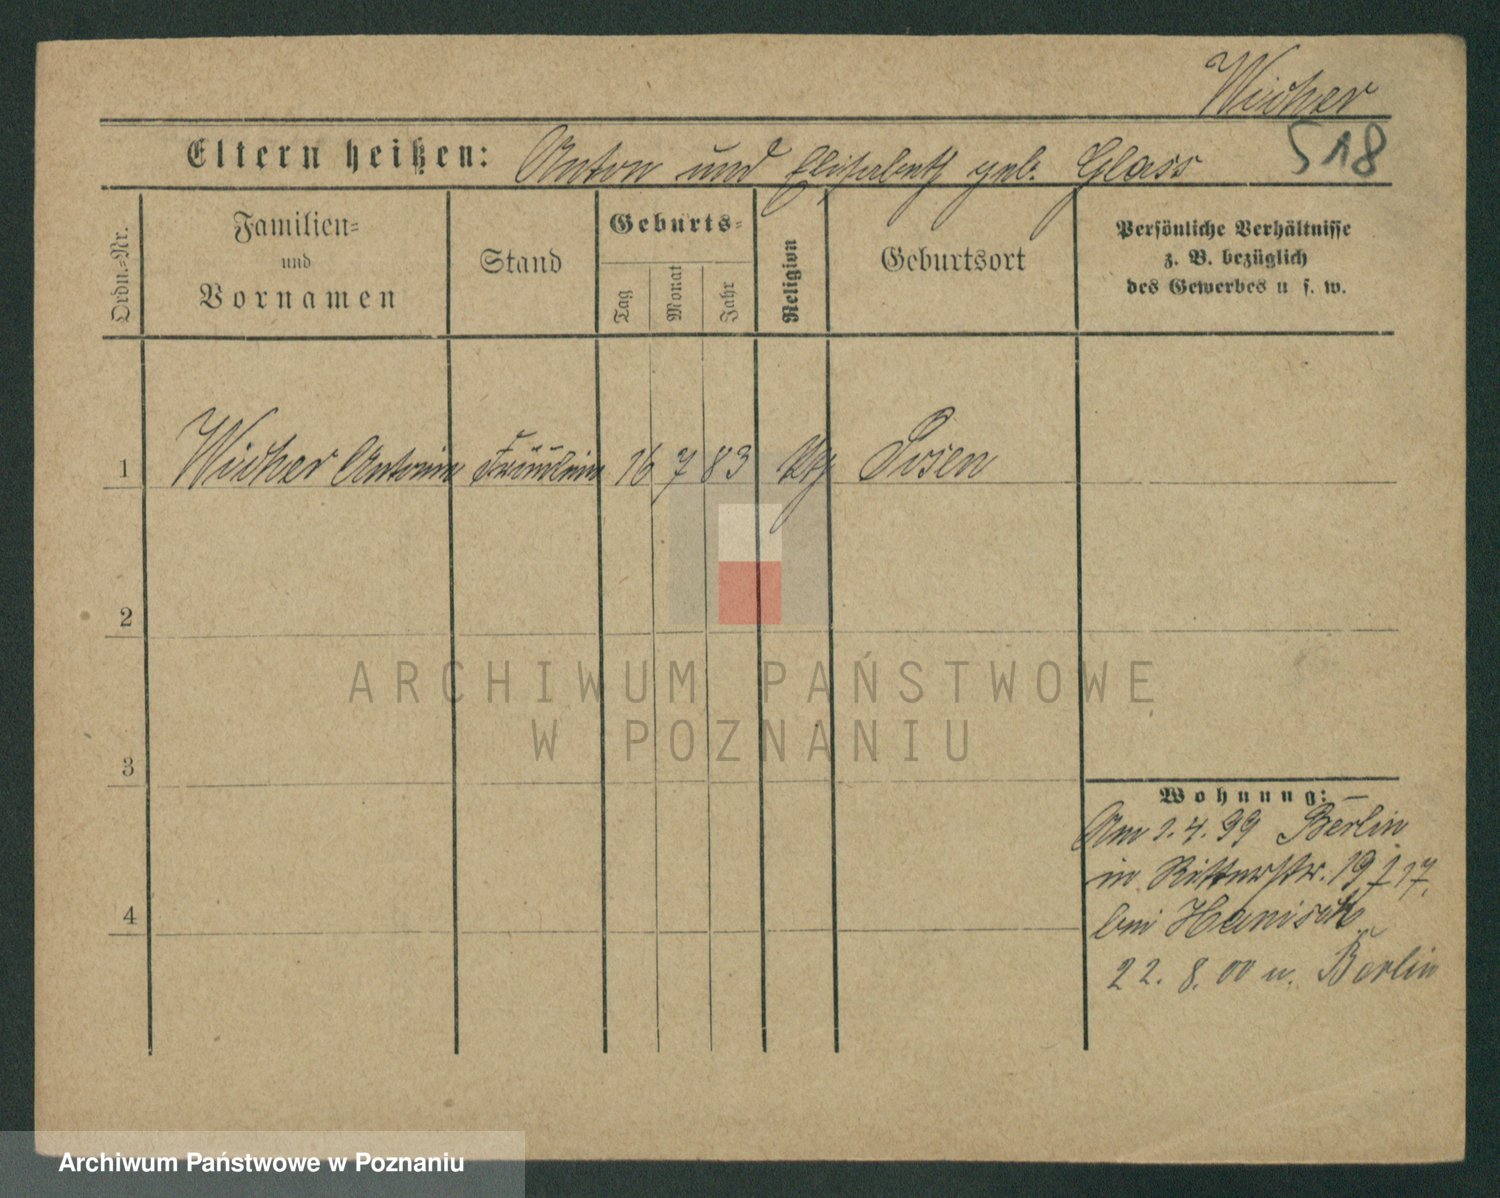 Wicher
518
Eltern heißen: Anton und Elisabeth geb. Glass
Ordn.-Nr.
Familien-
und
Vornamen
Stand
Geburts-
Tag
Monat
Jahr
Religion
Geburtsort
Persönliche Verhältnisse
z. B. bezüglich
des Gewerbes u s. w.
1 Wicher Antonie Fräulein 16 7 83 Posen
2
3
4
Wohnung:
Am 1. 4. 99 Berlin
in Ritterstr. 19
bei Hanisch
22. 8. 00 n. Berlin
ARCHIWUM PAŃSTWOWE
W POZNANIU
Archiwum Państwowe w Poznaniu